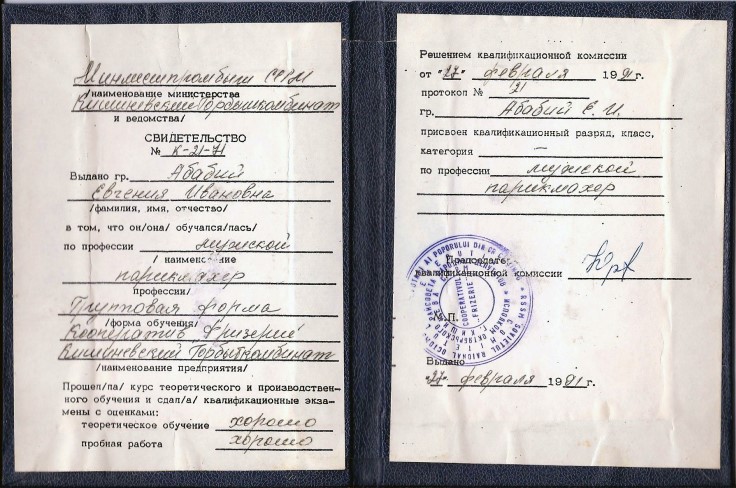 Минместпромбыт ССРМ
/наименование министерства
Кишиневский Горбыткомбинат
и ведомства/
СВИДЕТЕЛЬСТВО
№ К-21-71
Выдано гр. Абабий
Евгения Ивановна
/фамилия, имя, отчество/
в том, что он/она/ обучался/лась/
по профессии мужской
/ наименование
парикмахер
профессии/
Групповая форма
/форма обучения/
Кооператив "Фризерие"
Кишиневский Горбыткомбинат
/наименование предприятия/
Прошел/ла/ курс теоретического и производствен-
ного обучения и сдал/а/ квалификационные экза-
мены с оценками:
теоретическое обучение хорошо
пробная работа хорошо
Решением квалификационной комиссии
от "27" февраля 1991г.
протокол № 21
гр. Абабий Е. И.
присвоен квалификационный разряд, класс,
категория —
по профессии мужской
парикмахер
Председатель
квалификационной комиссии
М.П.
COOPERATIVUL
FRIZERIE
Выдано
"27" февраля 1991г.